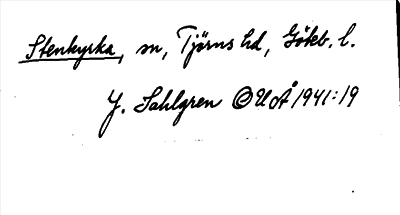 Stenkyrka, sn, Tjörns hd, Göteb. l.
J. Sahlgren © UÅ 1941:19